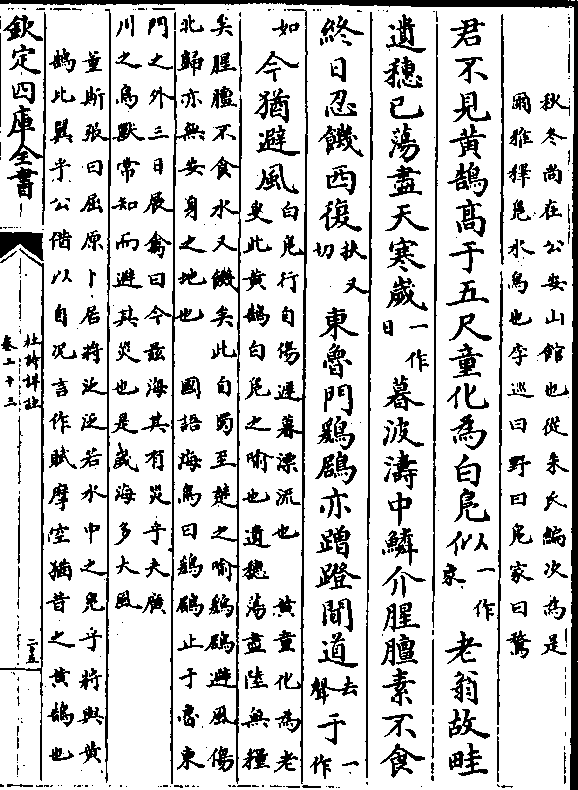 秋冬尚在公安山館也從朱氏編次為是
爾雅釋鳧水鳥也李巡曰野曰鳧家曰鶩
君不見黃鵠髙于五尺童化為白鳧似一作象老翁故畦
遺穗已蕩盡天寒歲一作日暮波濤中鱗介腥膻素不食
終日忍饑西復扶又切東魯門鶢鶋亦蹭蹬聞道去聲于一作
如今猶避風白鳧行自傷遲暮漂流也 黃童化為老
叟此黃鵠白鳧之喻也遺穗蕩盡陸無糧
矣腥膻不食水又饑矣此自蜀至楚之喻鶢鶋避風傷
北歸亦無安身之地也 國語海鳥曰鶢鶋止于魯東
門之外三日展禽曰今兹海其有災乎夫廣
川之鳥獸常知而避其災也是歲海多大風
董斯張曰屈原卜居將汎汎若水中之鳧乎將與黃
鵠比翼乎公借以自況言作賦摩空猶昔之黃鵠也
欽定四庫全書
杜詩詳註
卷二十三
二五